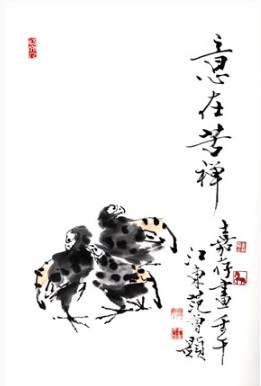 意在苦禅
嘉存畫壬午
江東范曾題